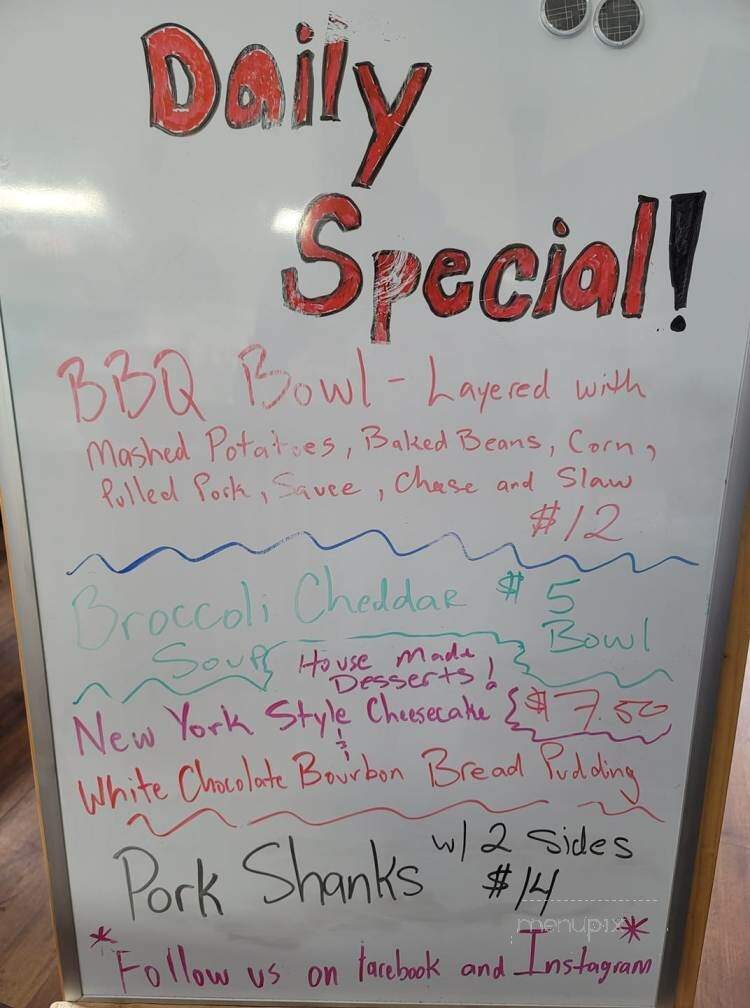 Daily
Special!
BBQ Bowl - Layered with
Mashed Potatoes, Baked Beans, Corn,
Pulled Pork, Sauce, Chese and Slaw
$12
Broccoli Cheddar $5
Soup Bowl
House Made
Desserts!
New York Style Cheesecake $7.50
&
White Chocolate Bourbon Bread Pudding
Pork Shanks w/ 2 Sides
$14
menupix
* Follow us on facebook and Instagram *